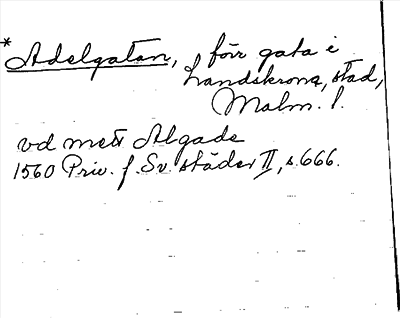 *Adelgatan, förr gata i
Landskrona, stad,
Malm. l.
vd mett Algade
1560 Priv. f. Sv. städer II, s. 666.